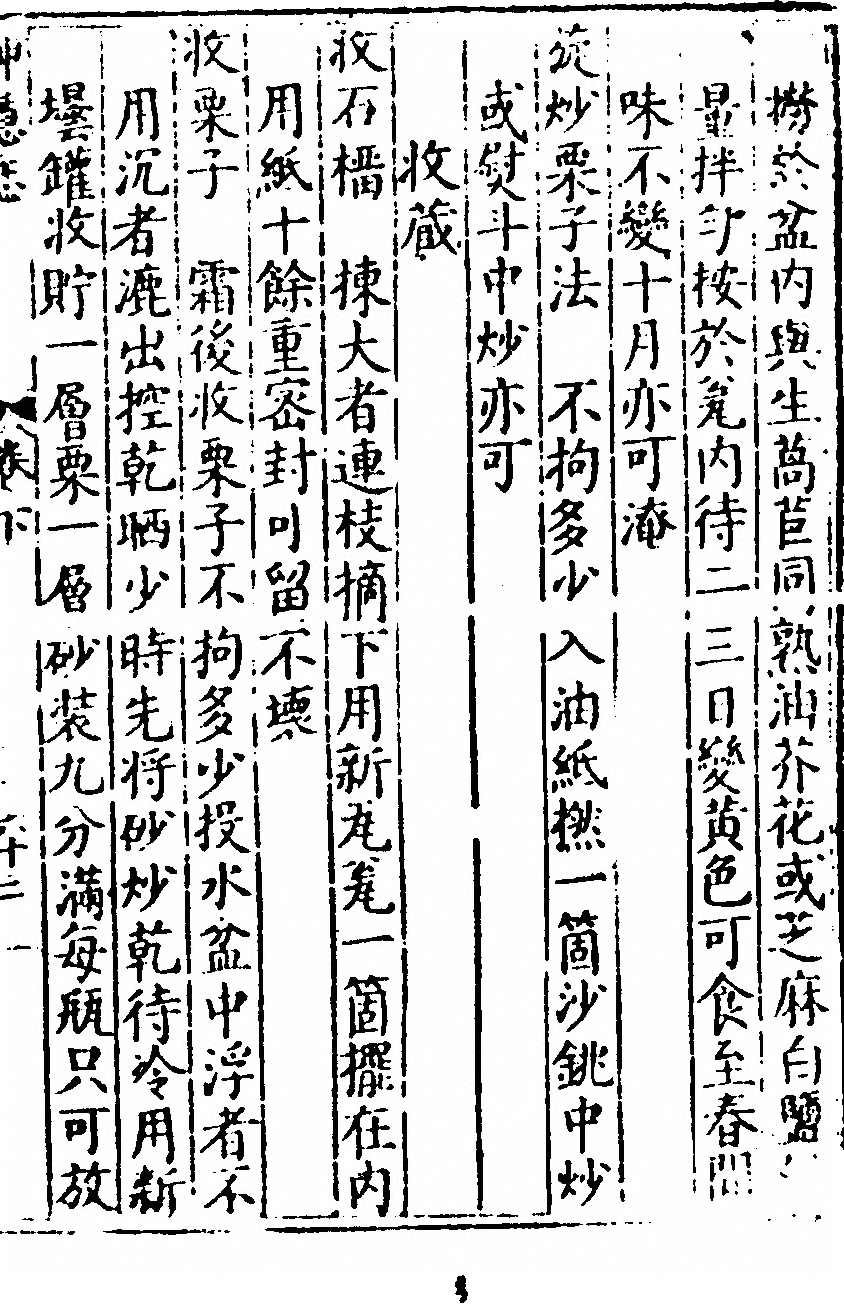 撈於盆内與生萵苣同熟油芥花或芝麻白鹽
量拌匀按於瓮内待二三日變黄色可食至春間
味不變十月亦可淹
旋炒栗子法　不拘多少入油紙撚一箇沙銚中炒
或熨斗中炒亦可
收藏
收石榴　揀大者連枝摘下用新瓦瓮一箇擺在内
用紙十餘重密封可留不壊
收栗子　霜後收栗子不拘多少投水盆中浮者不
用沉者漉出控乾晒少時先将砂炒乾待冷用新
壜罐收貯一層栗一層砂装九分滿每瓶只可放
卷下
六十二